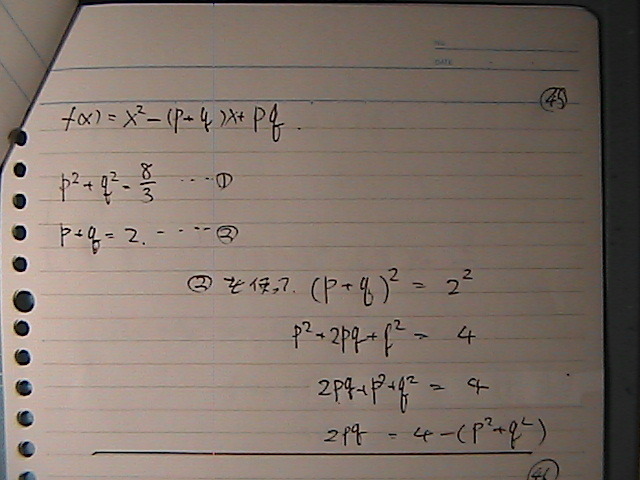 NO.
DATE
㊺
f(x) = x² - (p+q)x + pq.
p² + q² = 8/3 ····· ①
p + q = 2. ····· ②
② を使って (p+q)² = 2²
p² + 2pq + q² = 4
2pq + p² + q² = 4
2pq = 4 - (p² + q²)
㊻